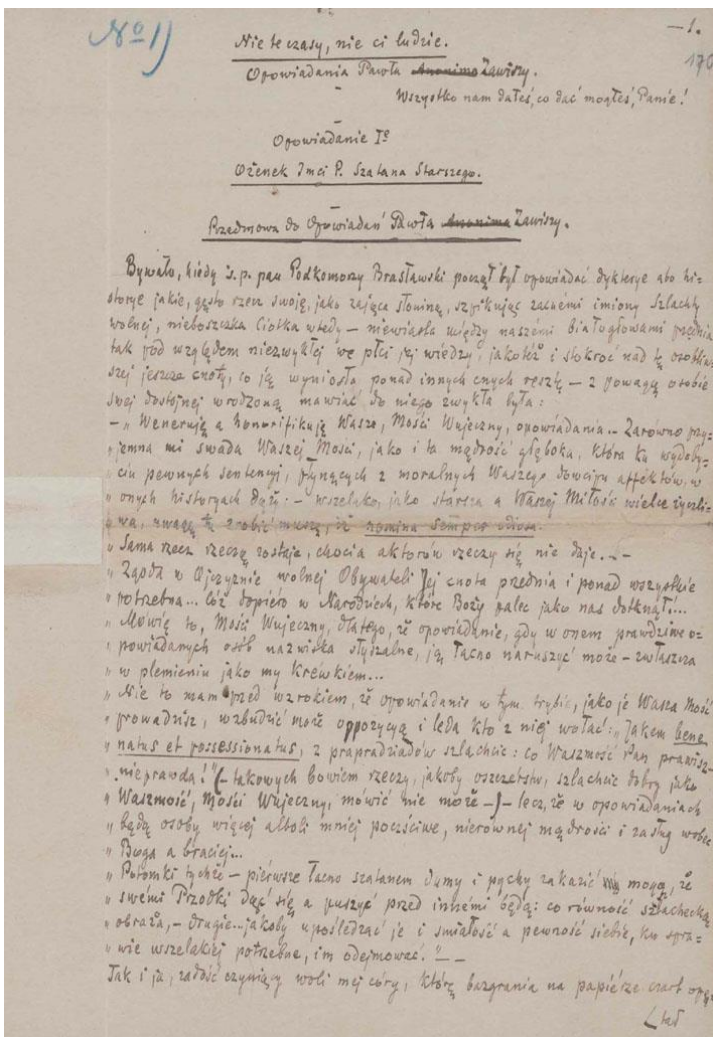 No 1)
—1.
170
Nie te czasy, nie ci ludzie.
Opowiadania Pawła Anonima Zawiszy.
Wszystko nam dałeś, co dać mogłeś, Panie!
Opowiadanie Io
Ożenek Imci P. Szatana Starszego.
Przedmowa do Opowiadań Pawła Anonima Zawiszy.
Bywało, kiedy ś.p. pan Podkomorzy Brasławski począł był opowiadać dykterye abo hi=
storye jakie, gęsto rzecz swoję, jako zająca słoniną, szpikując zacnemi imiony Szlachty
wolnej, nieboszczka Ciotka wtedy — niewiasta między naszemi białogłowami przednia
tak pod względem niezwykłej we płci jej wiedzy, jakoteż i stokroć nad tę osobliw=
szej jeszcze cnoty, co ją wyniosła ponad innych cnych resztę — z powagą osobie
swej dostojnej wrodzoną mawiać do niego zwykła była:
— „Weneruję a honorifikuję Wasze, Mości Wujeczny, opowiadania... Zarówno przy=
„jemna mi swada Waszej Mości, jako i ta mądrość głęboka, która ku wydoby=
„ciu pewnych sentencyj, płynących z moralnych Waszego dowcipu affektów, w
„onych historyach dąży. — wszelako, jako starsza a Waszej Miłości wielce życzli=
„wa, uwagę tę zrobić muszę, iż nomina semper odiosa.
„Sama rzecz rzeczą zostaje, chocia aktorów rzeczy się nie daje. . —
„Zgoda w Ojczyznie wolnej Obywateli Jej cnota przednia i ponad wszystkie
„potrzebna... Cóż dopiero w Narodziech, które Boży palec jako nas dotknął!...
„Mówię to, Mości Wujeczny, dlatego, że opowiadanie, gdy w onem prawdziwe o=
„powiadanych osób nazwiska słyszalne, ją łacno naruszyć może — zwłaszcza
„w plemieniu jako my krewkiem...
„Nie to mam przed wzrokiem, że opowiadanie w tym trybie, jako je Wasza Mość
„prowadzisz, wzbudzić może oppozycyą i leda kto z niej wołać: „Jakem bene
„natus et possessionatus, z prapradziadów szlachcic: co Waszmość Pan prawisz—
„nieprawda!" (— takowych bowiem rzeczy, jakoby oszczerstw, szlachcic dobry jako
„Waszmość, Mości Wujeczny, mówić nie może —) — lecz, że w opowiadaniach
„będą osoby więcej alboli mniej poczciwe, nierównej mądrości i zasług wobec
„Boga a braciej...
„Potomki tychże — pierwsze łacno szatanem dumy i pychy zakazić mogą, że
„swémi Przodki dąć się a puszyć przed innémi będą: co równość szlachecką
„obraża, — drugie... jakoby upośledzać je i śmiałość a pewność siebie, ku spra=
„wie wszelakiej potrzebne, im odejmować." —
Tak i ja, zadość czyniący woli mej córy, którą bazgrania na papiérze czart opę=
tał